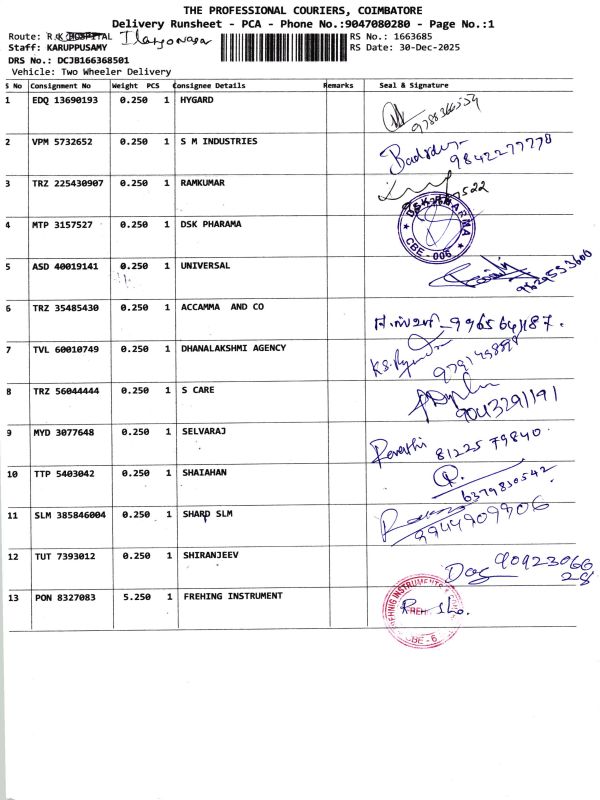 THE PROFESSIONAL COURIERS, COIMBATORE
Delivery Runsheet - PCA - Phone No.:9047080280 - Page No.:1
Route: R.K HOSPITAL
RS No.: 1663685
Staff: KARUPPUSAMY
RS Date: 30-Dec-2025
DRS No.: DCJB166368501
Vehicle: Two Wheeler Delivery
S No Consignment No Weight PCS Consignee Details Remarks Seal & Signature
1 EDQ 13690193 0.250 1 HYGARD
2 VPM 5732652 0.250 1 S M INDUSTRIES 9842277778
3 TRZ 225430907 0.250 1 RAMKUMAR
4 MTP 3157527 0.250 1 DSK PHARAMA DSK PHARMA CBE-006
5 ASD 40019141 0.250 1 UNIVERSAL
6 TRZ 35485430 0.250 1 ACCAMMA AND CO
7 TVL 60010749 0.250 1 DHANALAKSHMI AGENCY
8 TRZ 56044444 0.250 1 S CARE 9043291191
9 MYD 3077648 0.250 1 SELVARAJ Revathi 81225 79840
10 TTP 5403042 0.250 1 SHAIAHAN 6379830542
11 SLM 385846004 0.250 1 SHARP SLM 9944909906
12 TUT 7393012 0.250 1 SHIRANJEEV 90923066
28
13 PON 8327083 5.250 1 FREHING INSTRUMENT